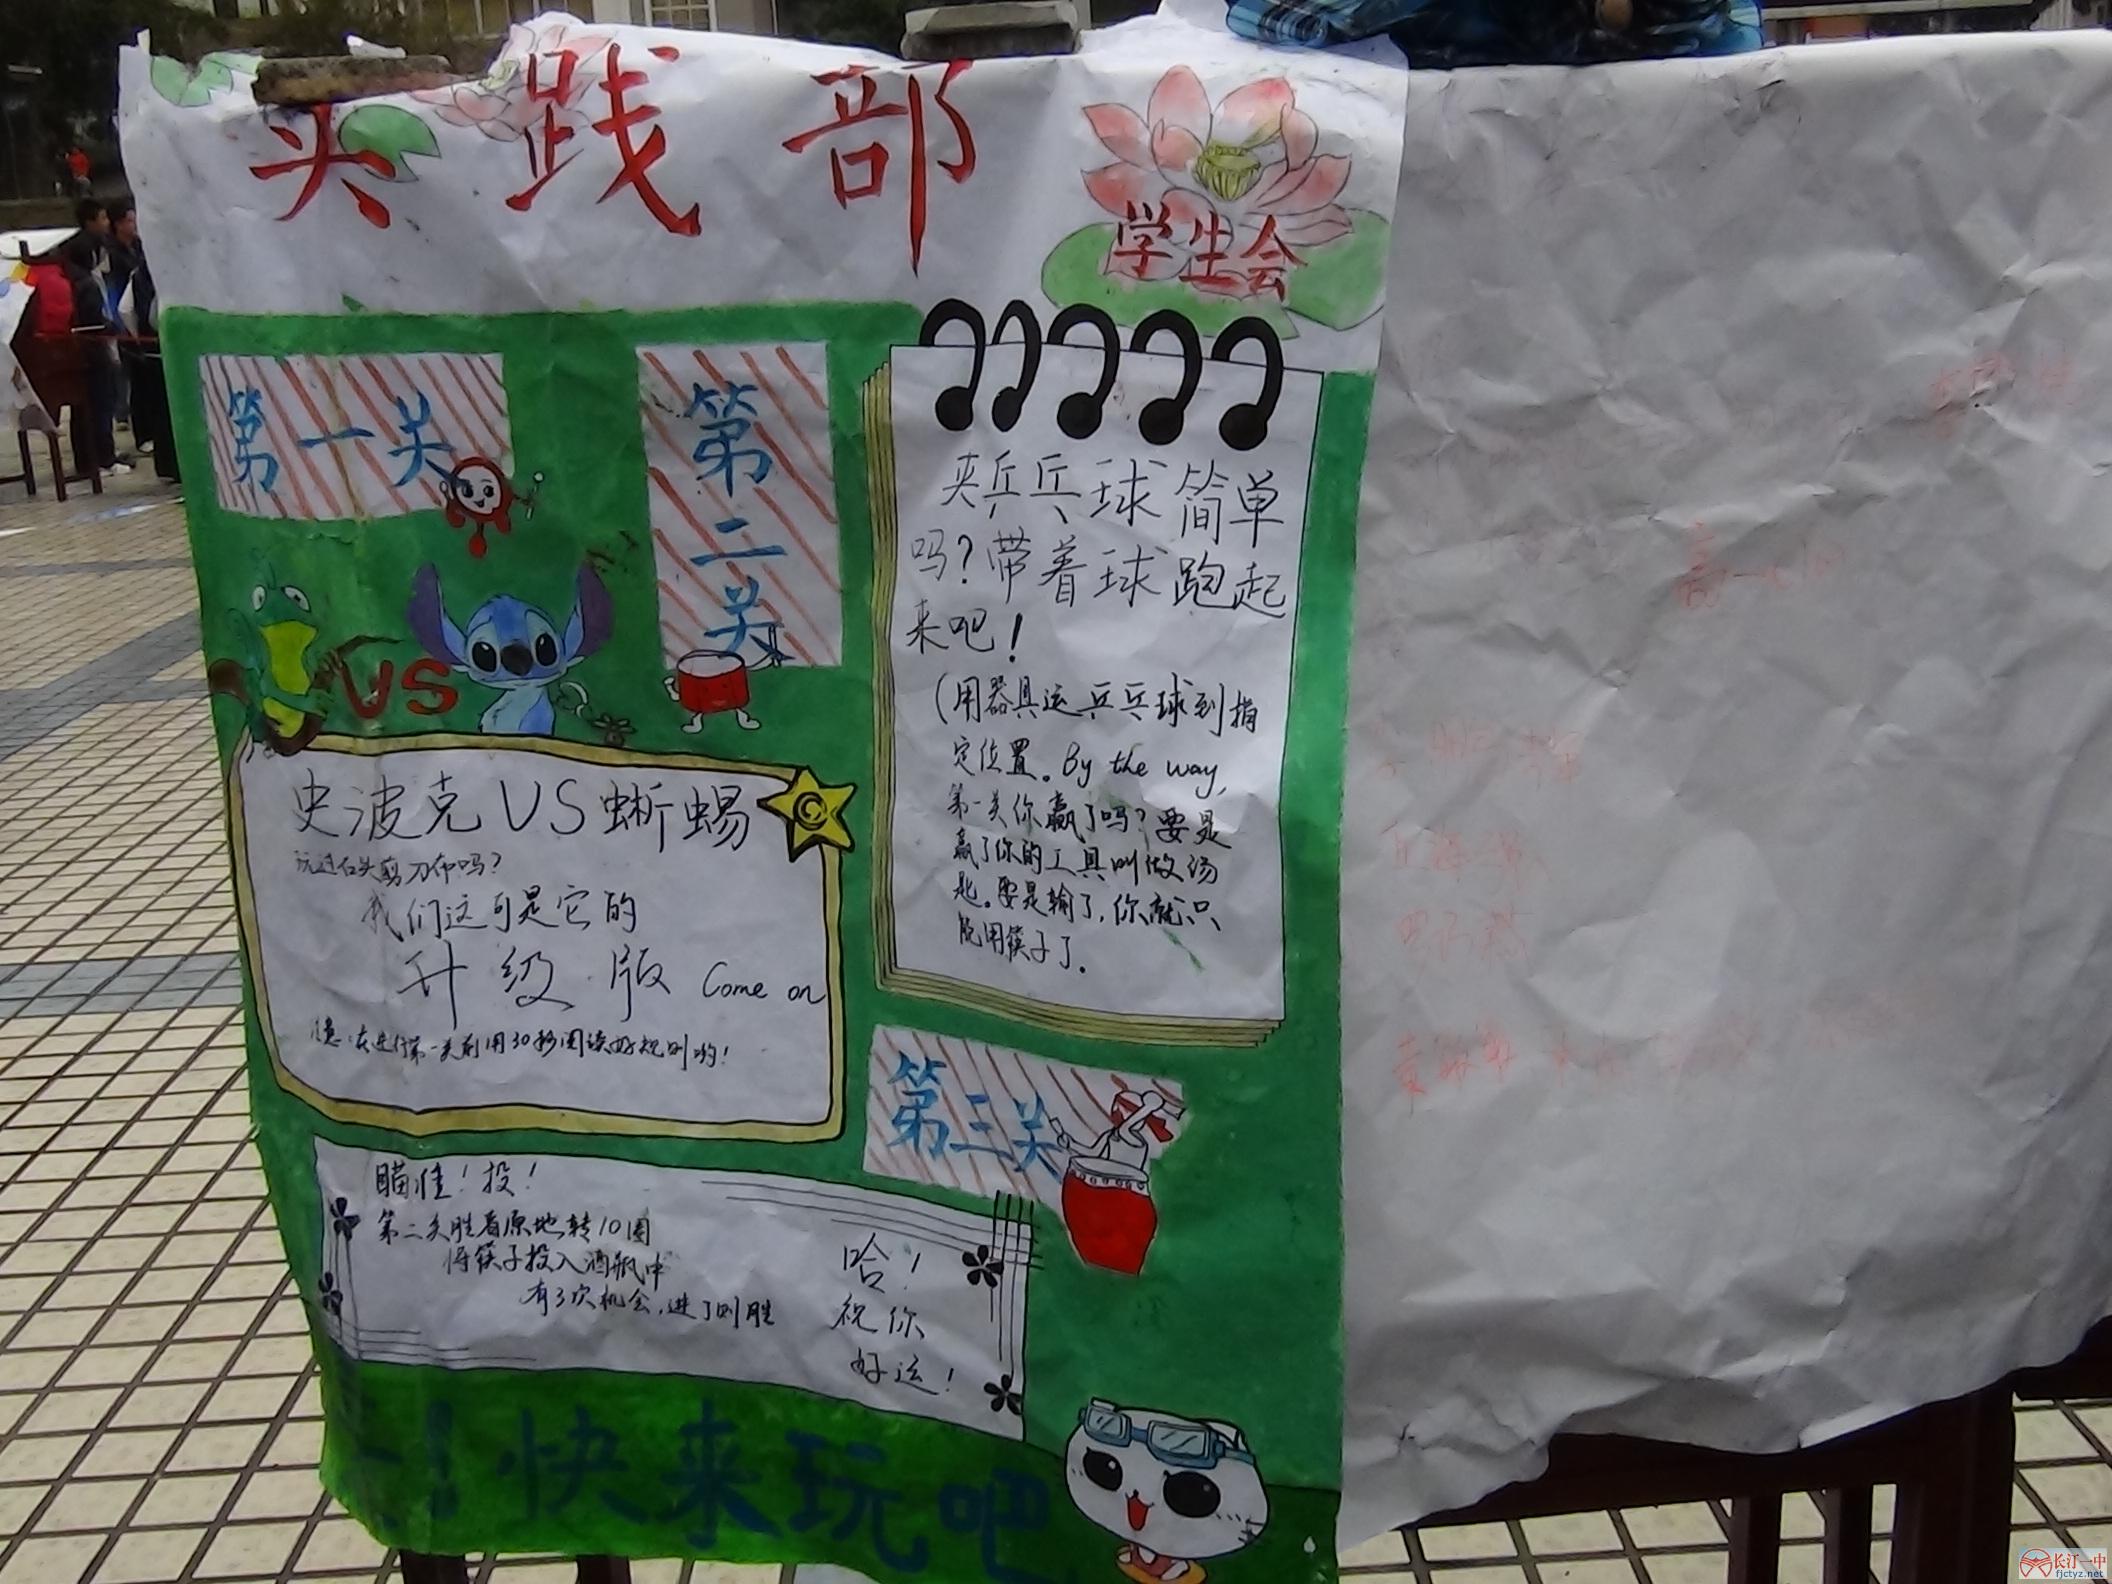 实践部
学生会
第一关
VS
史波克VS蜥蜴
玩过石头剪刀布吗？
我们这可是它的
升级版 Come on
注意：在进行第一关前用30秒阅读好规则哟！
第二关
夹乒乓球简单
吗？带着球跑起
来吧！
（用器具运乒乓球到指
定位置。By the way,
第一关你赢了吗？要是
赢了你的工具叫做汤
匙。要是输了，你就只
能用筷子了。
第三关
瞄准！投！
第二关胜者原地转10圈
将筷子投入酒瓶中
有3次机会，进了则胜
哈！
祝你
好运！
！快来玩吧
长汀一中
fjctyz.net